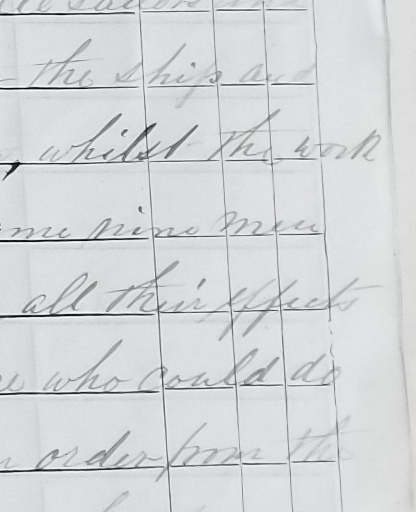 sailors
the ship and
, whilst the work
nine men
all their effects
who could do
order from the